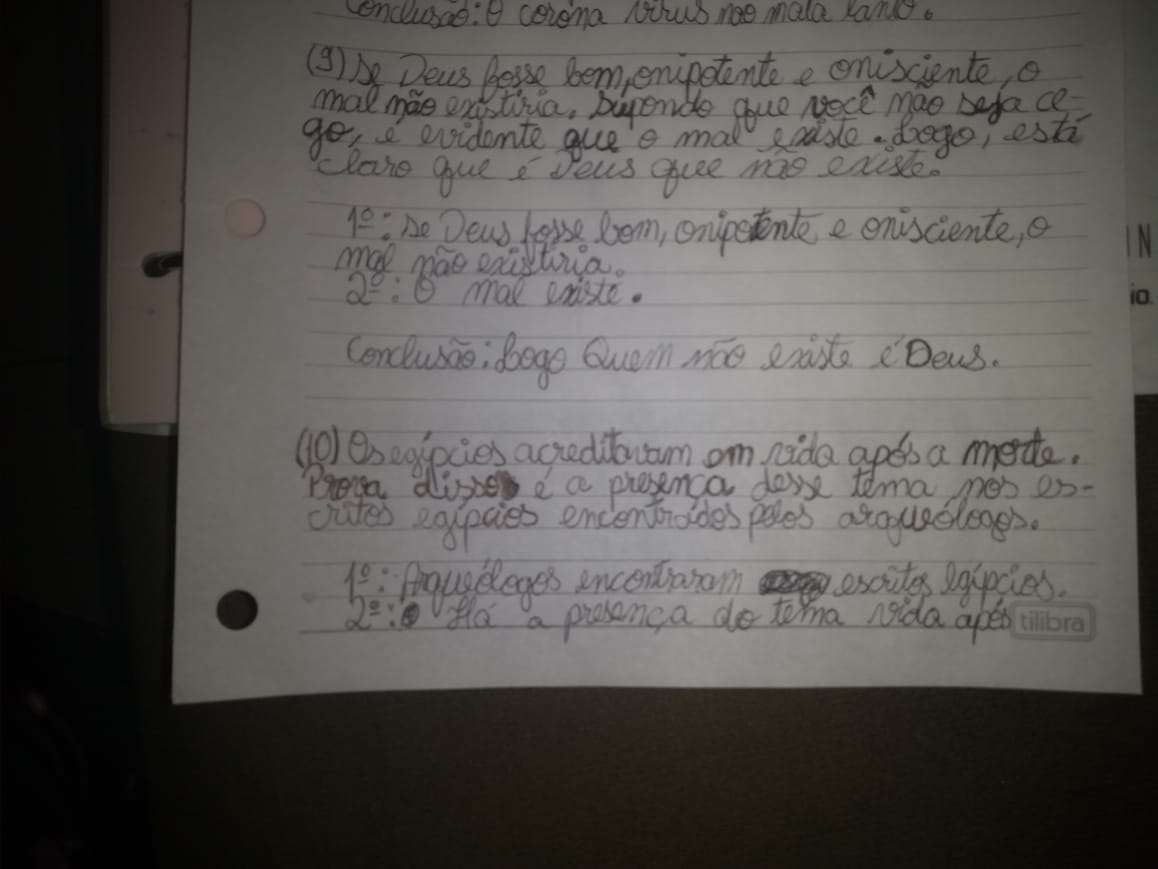 Conclusão: O corona vírus não mata tanto.
(9) Se Deus fosse bom, onipotente e onisciente, o
mal não existiria. Supondo que você não seja ce-
go, é evidente que o mal existe. Logo, está
claro que é Deus que não existe.
1º: Se Deus fosse bom, onipotente e onisciente, o
mal não existiria.
2º: O mal existe.
Conclusão: Logo Quem não existe é Deus.
(10) Os egípcios acreditavam em vida após a morte.
Prova disso é a presença desse tema nos es-
critos egípcios encontrados pelos arqueólogos.
1º: Arqueólogos encontraram escritos egípcios.
2º: Há a presença do tema vida após
tilibra
IN
io.